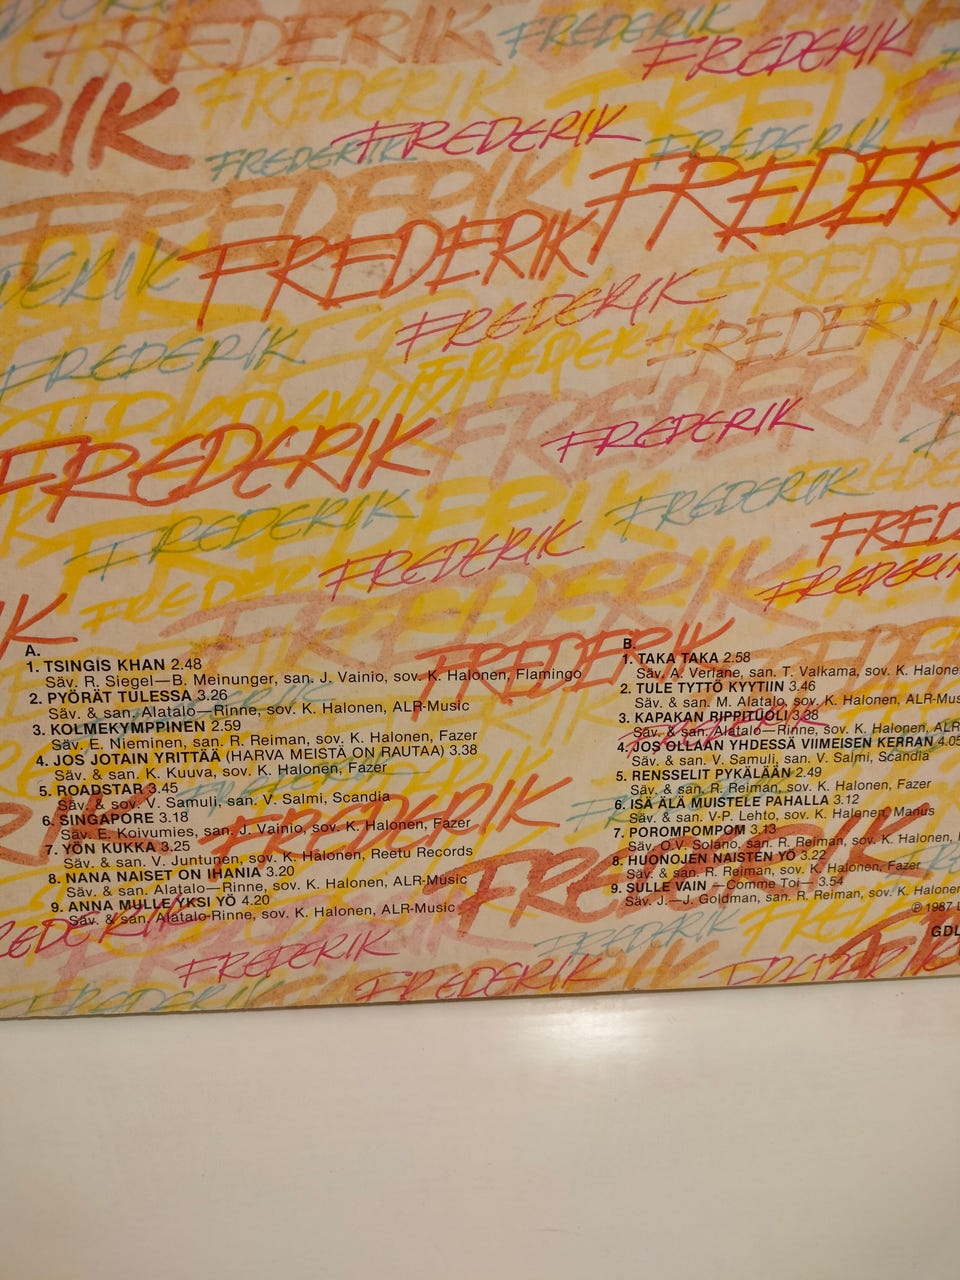 FREDERIK
FREDERIK
FREDERIK
RIK
FREDERIK
FREDERIK
FREDERIK
FREDERIK
FREDERIK
FREDER
FREDERIK
DERIK
FREDERIK
FREDERIK
FREDERIK
FREDERIK
FREDERIK
FREDERIK
FREDERIK
FREDERIK
FREDERIK
FREDERIK
FREDERIK
FRED
FREDERIK
FREDERIK
FREDERIK
IK
FREDERIK
A.
1. TSINGIS KHAN 2.48
Säv. R. Siegel—B. Meinunger, san. J. Vainio, sov. K. Halonen, Flamingo
2. PYÖRÄT TULESSA 3.26
Säv. & san. Alatalo—Rinne, sov. K. Halonen, ALR-Music
3. KOLMEKYMPPINEN 2.59
Säv. E. Nieminen, san. R. Reiman, sov. K. Halonen, Fazer
4. JOS JOTAIN YRITTÄÄ (HARVA MEISTÄ ON RAUTAA) 3.38
Säv. & san. K. Kuuva, sov. K. Halonen, Fazer
5. ROADSTAR 3.45
Säv. & sov. V. Samuli, san. V. Salmi, Scandia
6. SINGAPORE 3.18
Säv. E. Koivumies, san. J. Vainio, sov. K. Halonen, Fazer
7. YÖN KUKKA 3.25
Säv. & san. V. Juntunen, sov. K. Halonen, Reetu Records
8. NANA NAISET ON IHANIA 3.20
Säv. & san. Alatalo—Rinne, sov. K. Halonen, ALR-Music
9. ANNA MULLE YKSI YÖ 4.20
Säv. & san. Alatalo-Rinne, sov. K. Halonen, ALR-Music
B.
1. TAKA TAKA 2.58
Säv. A. Verlane, san. T. Valkama, sov. K. Halone
2. TULE TYTTÖ KYYTIIN 3.46
Säv. & san. M. Alatalo, sov. K. Halonen, ALR-Mus
3. KAPAKAN RIPPITUOLI 3.38
Säv. & san. Alatalo—Rinne, sov. K. Halonen, AL
4. JOS OLLAAN YHDESSÄ VIIMEISEN KERRAN 4.05
Säv. & san. V. Samuli, san. V. Salmi, Scandia
5. RENSSELIT PYKÄLÄÄN 2.49
Säv. & san. R. Reiman, sov. K. Halonen, Fazer
6. ISÄ ÄLÄ MUISTELE PAHALLA 3.12
Säv. & san. V-P. Lehto, sov. K. Halonen, Manus
7. POROMPOMPOM 3.13
Säv. O.V. Solano, san. R. Reiman, sov. K. Halonen,
8. HUONOJEN NAISTEN YÖ 3.22
Säv. & san. R. Reiman, sov. K. Halonen, Fazer
9. SULLE VAIN —Comme Toi— 3.54
Säv. J.—J. Goldman, san. R. Reiman, sov. K. Halonen
℗ 1987
GDL
FREDERIK
FREDERIK
FREDERIK
FREDERIK
FREDERIK